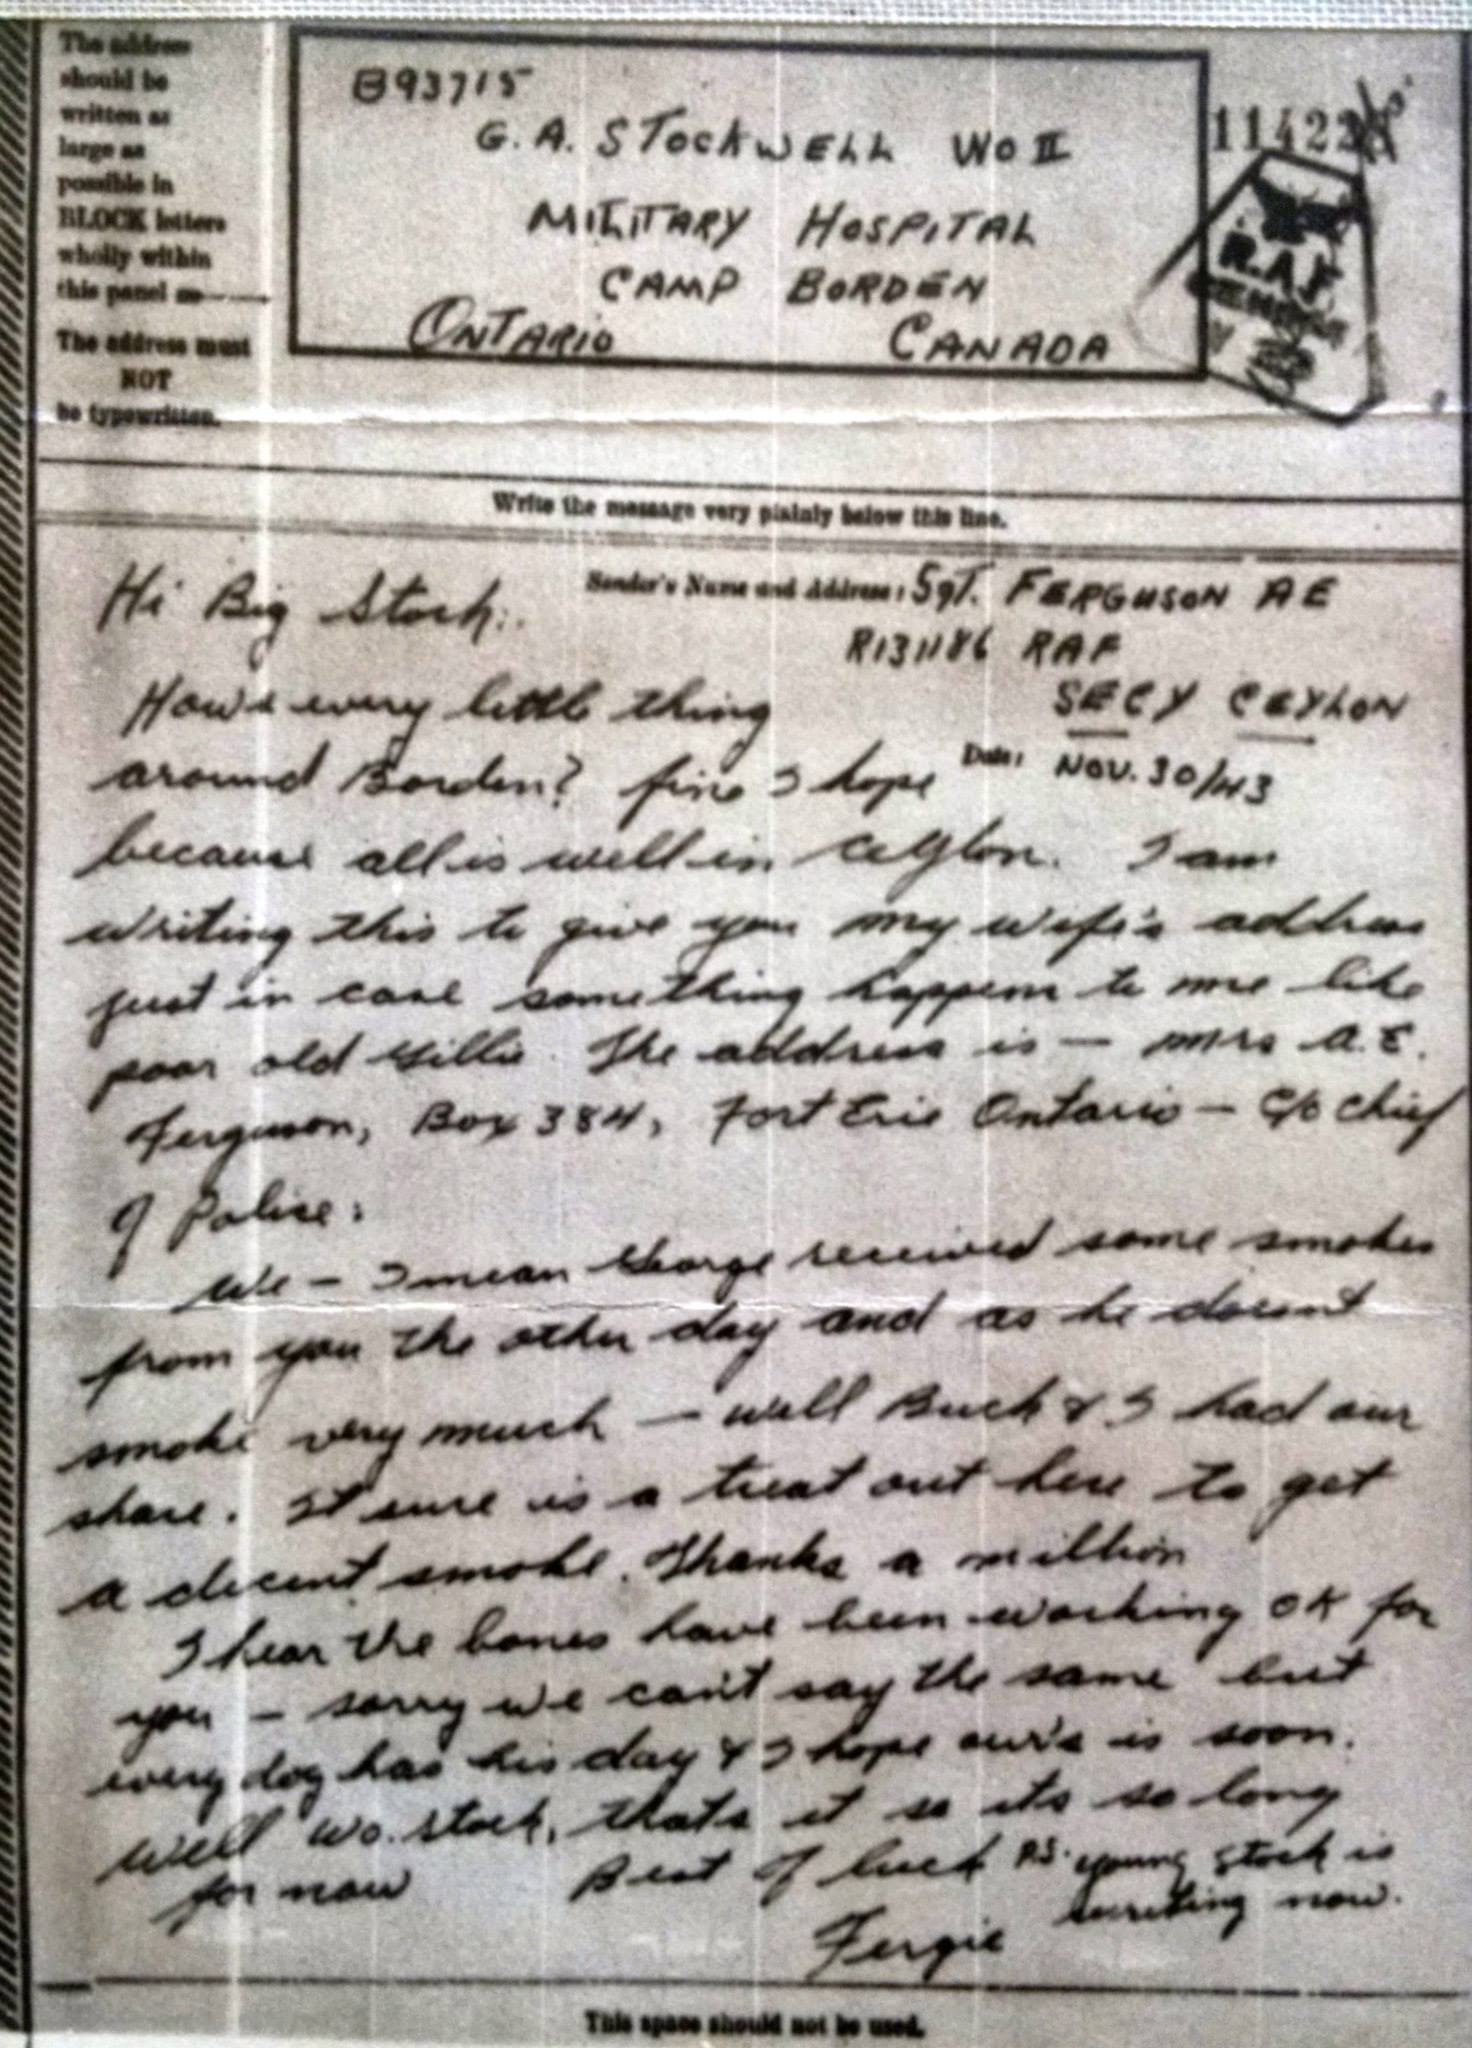 The address
should be
written as
large as
possible in
BLOCK letters
wholly within
this panel
The address must
NOT
be typewritten.
B93715
G. A. STOCKWELL WO II
MILITARY HOSPITAL
CAMP BORDEN
ONTARIO CANADA
11422
R.A.F.
Write the message very plainly below this line.
Sender's Name and Address: Sgt. FERGUSON AE
R131186 RAF
SECY CEYLON
Date: NOV. 30/43
Hi Big Stock:
How's every little thing
around Borden? fine I hope
because all is well in Ceylon. I am
writing this to give you my wife's address
just in case something happens to me like
poor old Gillie. The address is — Mrs A.E.
Ferguson, Box 384, Fort Erie Ontario — C/o Chief
of Police:
We — I mean George received some smokes
from you the other day and as he doesnt
smoke very much — well Buck & I had our
share. It sure is a treat out here to get
a decent smoke. Thanks a million
I hear the bones have been working OK for
you — sorry we can't say the same but
every dog has his day & I hope our's is soon.
Well Wo. Stock, thats it so its so long
for now Best of luck
Fergie
P.S. young Stock is
writing now.
This space should not be used.